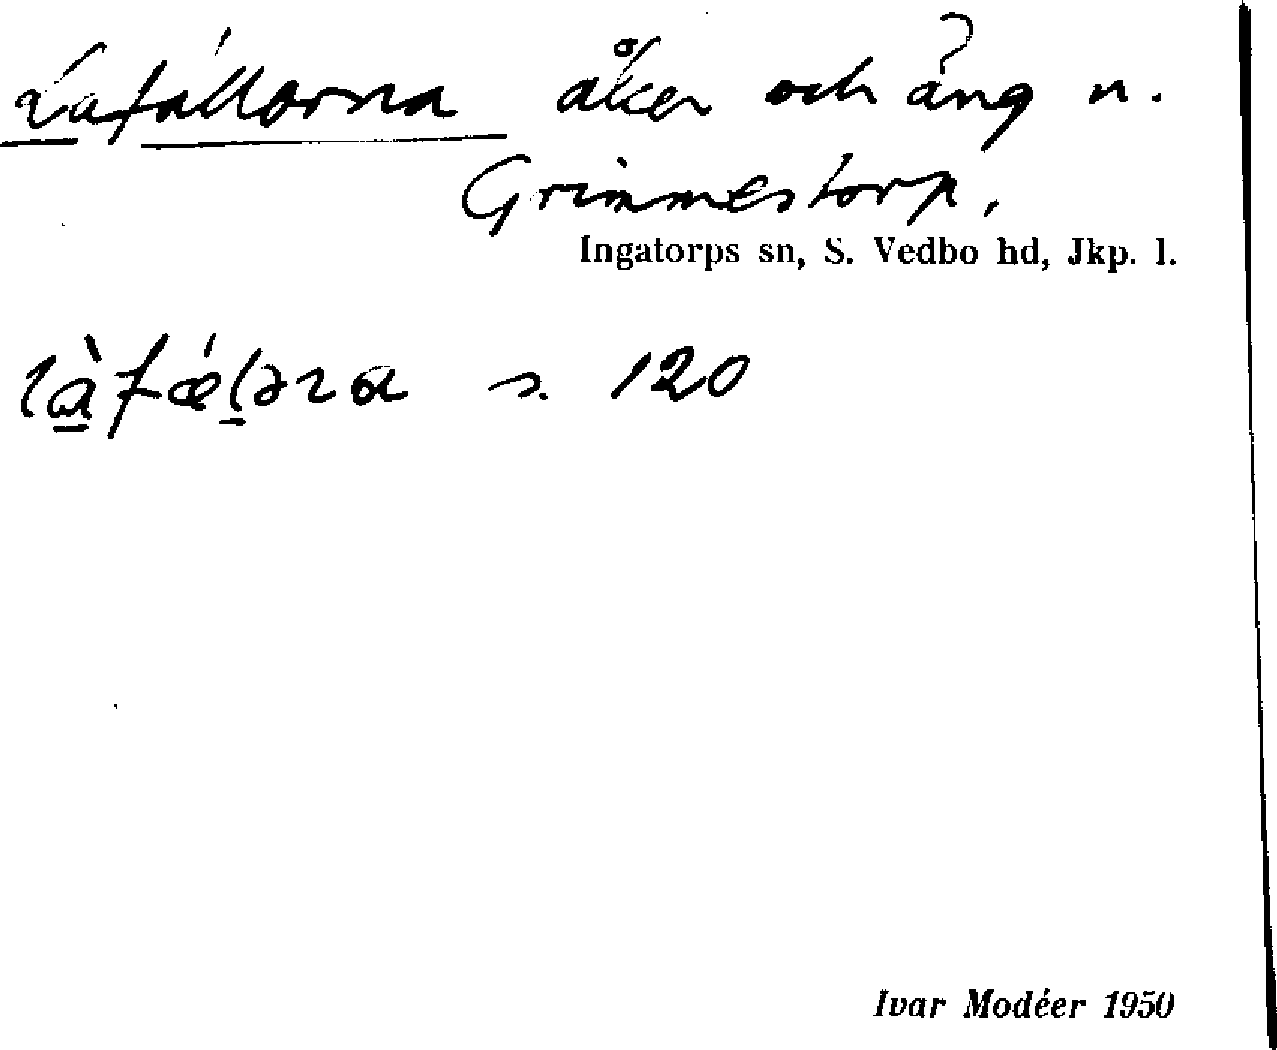 Lafällorna åker och äng n.
Grimmestorp.
Ingatorps sn, S. Vedbo hd, Jkp. l.
s. 120
Ivar Modéer 1950